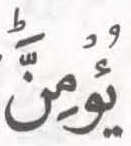 يُؤۡمِنَّؕ